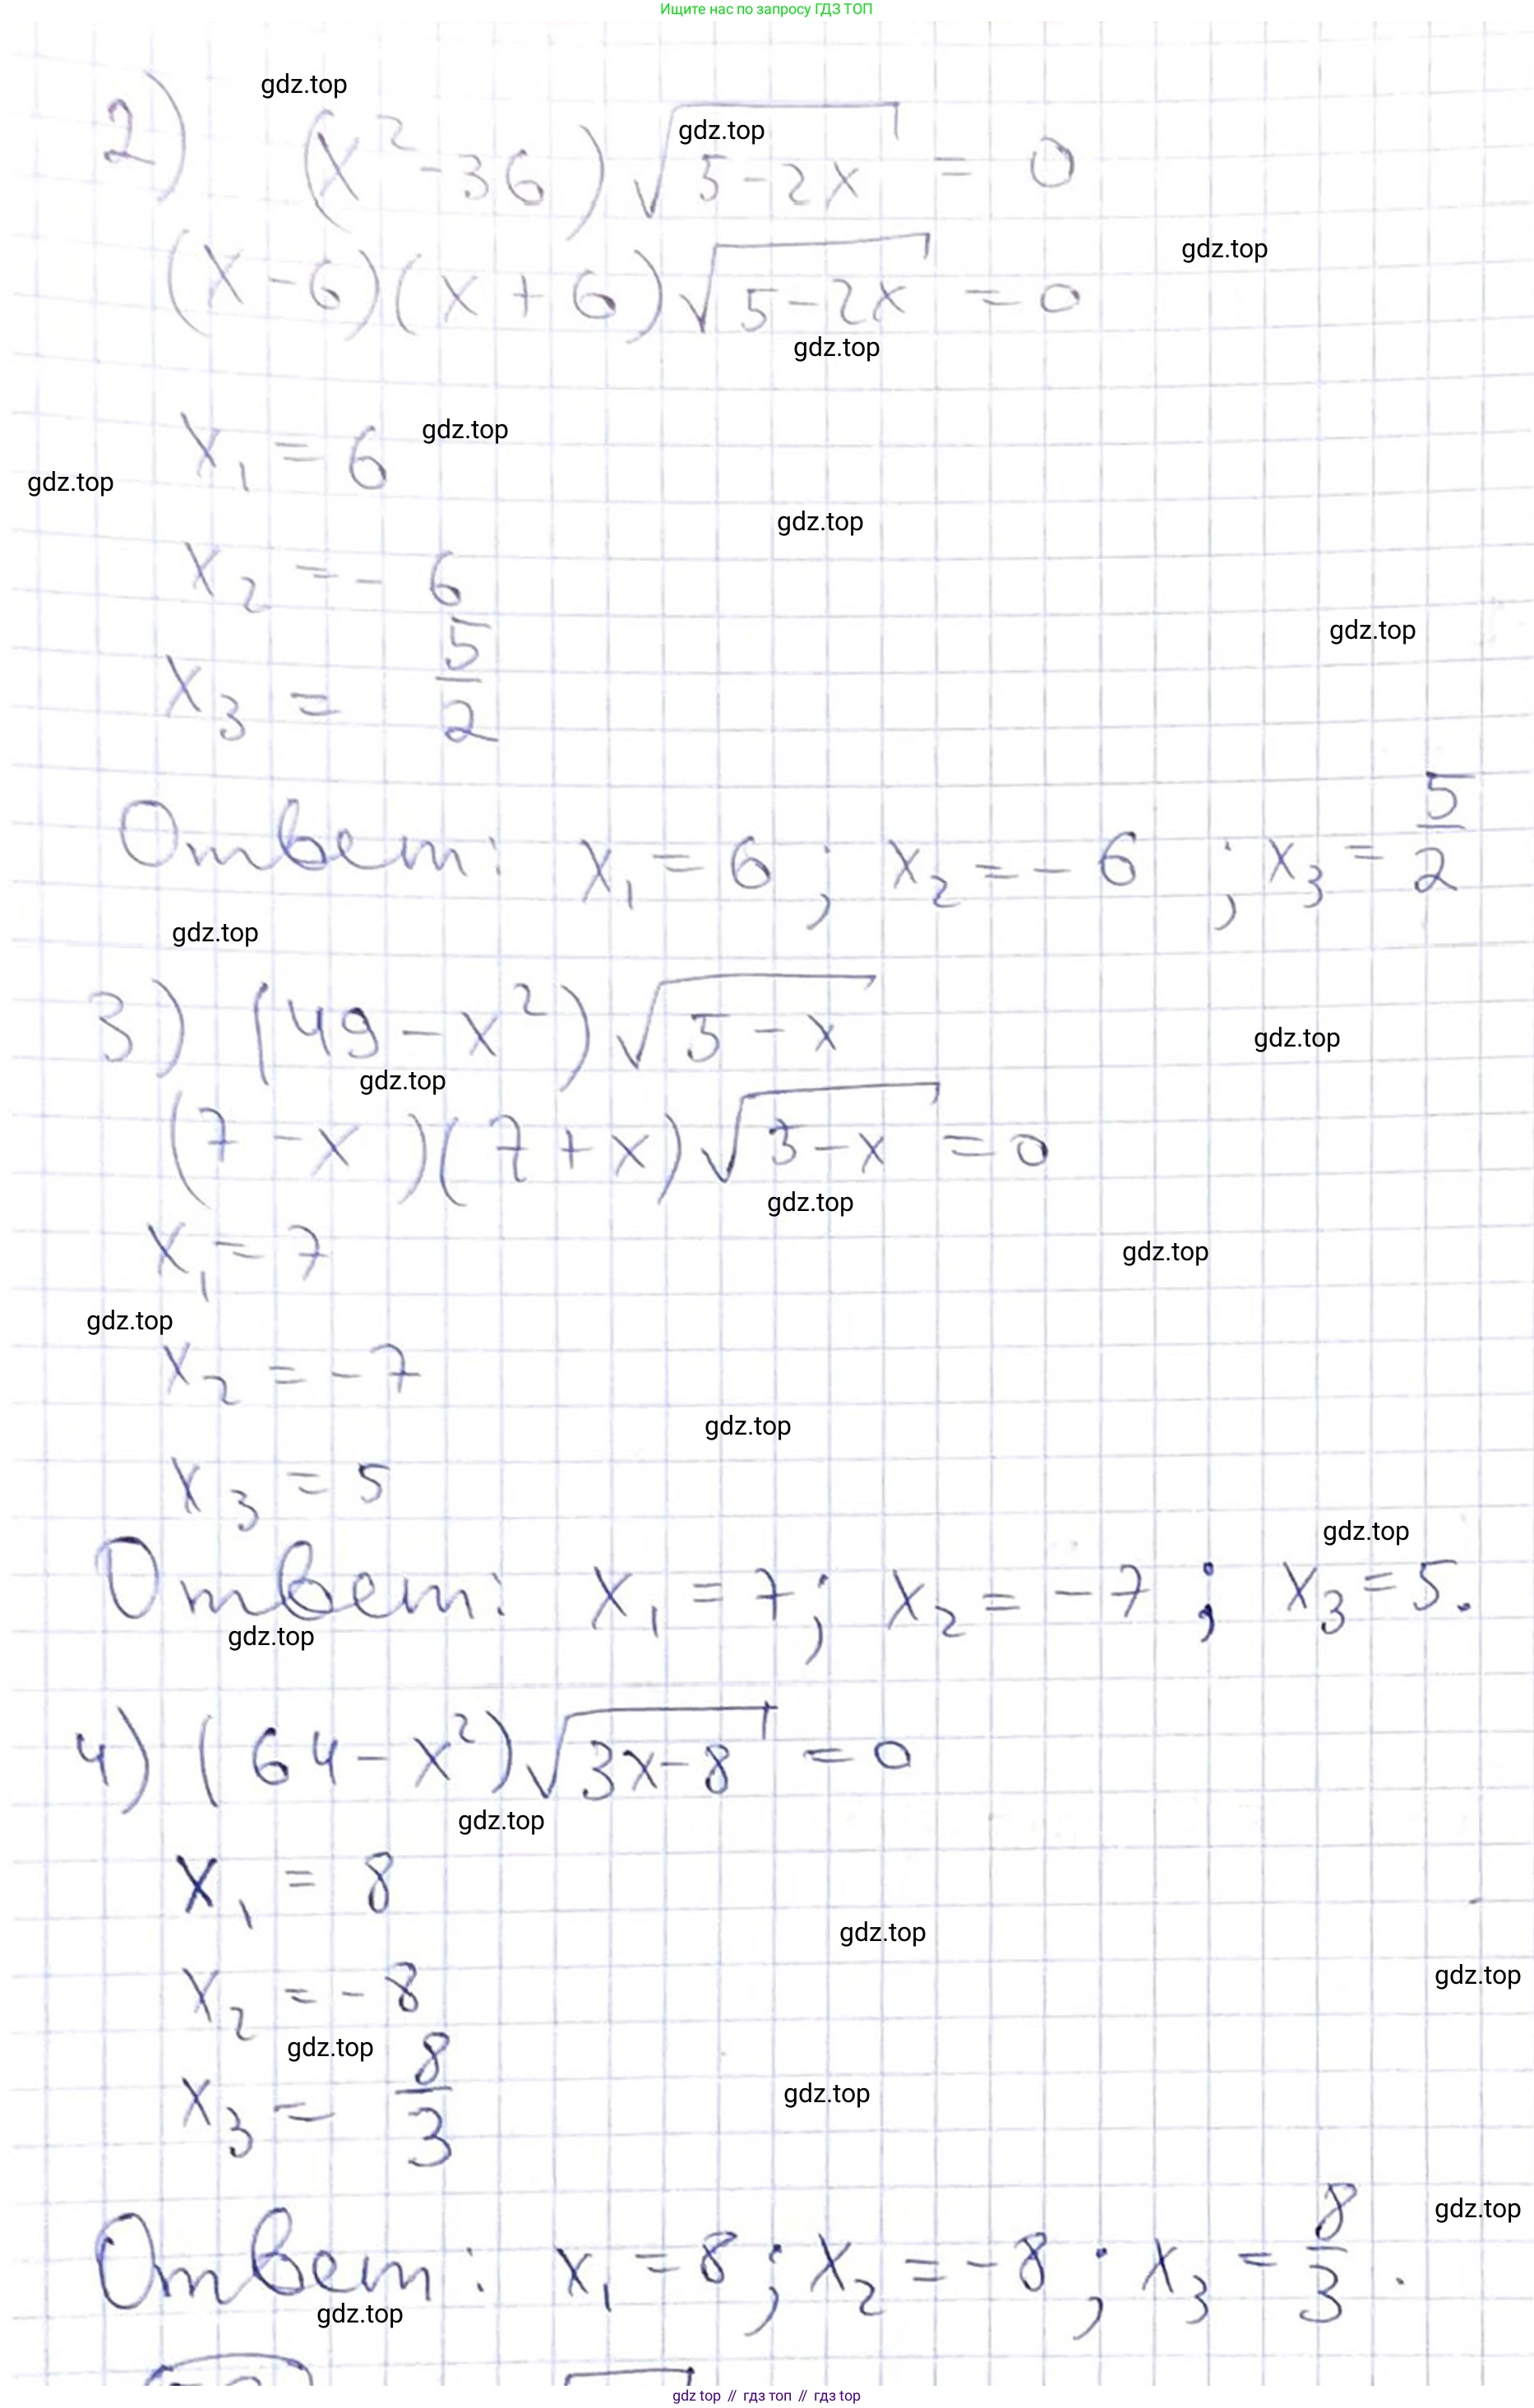 Ищите нас по запросу ГДЗ ТОП
gdz.top
2) (x² - 36) √(5 - 2x) = 0
gdz.top
(x - 6)(x + 6) √(5 - 2x) = 0
gdz.top
gdz.top
x₁ = 6
gdz.top
gdz.top
gdz.top
x₂ = - 6
gdz.top
x₃ = 5/2
Ответ: x₁ = 6 ; x₂ = - 6 ; x₃ = 5/2
gdz.top
3) (49 - x²) √(5 - x)
gdz.top
gdz.top
(7 - x)(7 + x) √(3 - x) = 0
gdz.top
x₁ = 7
gdz.top
gdz.top
x₂ = - 7
gdz.top
x₃ = 5
gdz.top
Ответ: x₁ = 7 ; x₂ = - 7 ; x₃ = 5.
gdz.top
4) (64 - x²) √(3x - 8) = 0
gdz.top
x₁ = 8
gdz.top
gdz.top
x₂ = - 8
gdz.top
gdz.top
x₃ = 8/3
gdz.top
Ответ: x₁ = 8 ; x₂ = - 8 ; x₃ = 8/3 .
gdz.top
gdz top // гдз топ // гдз top